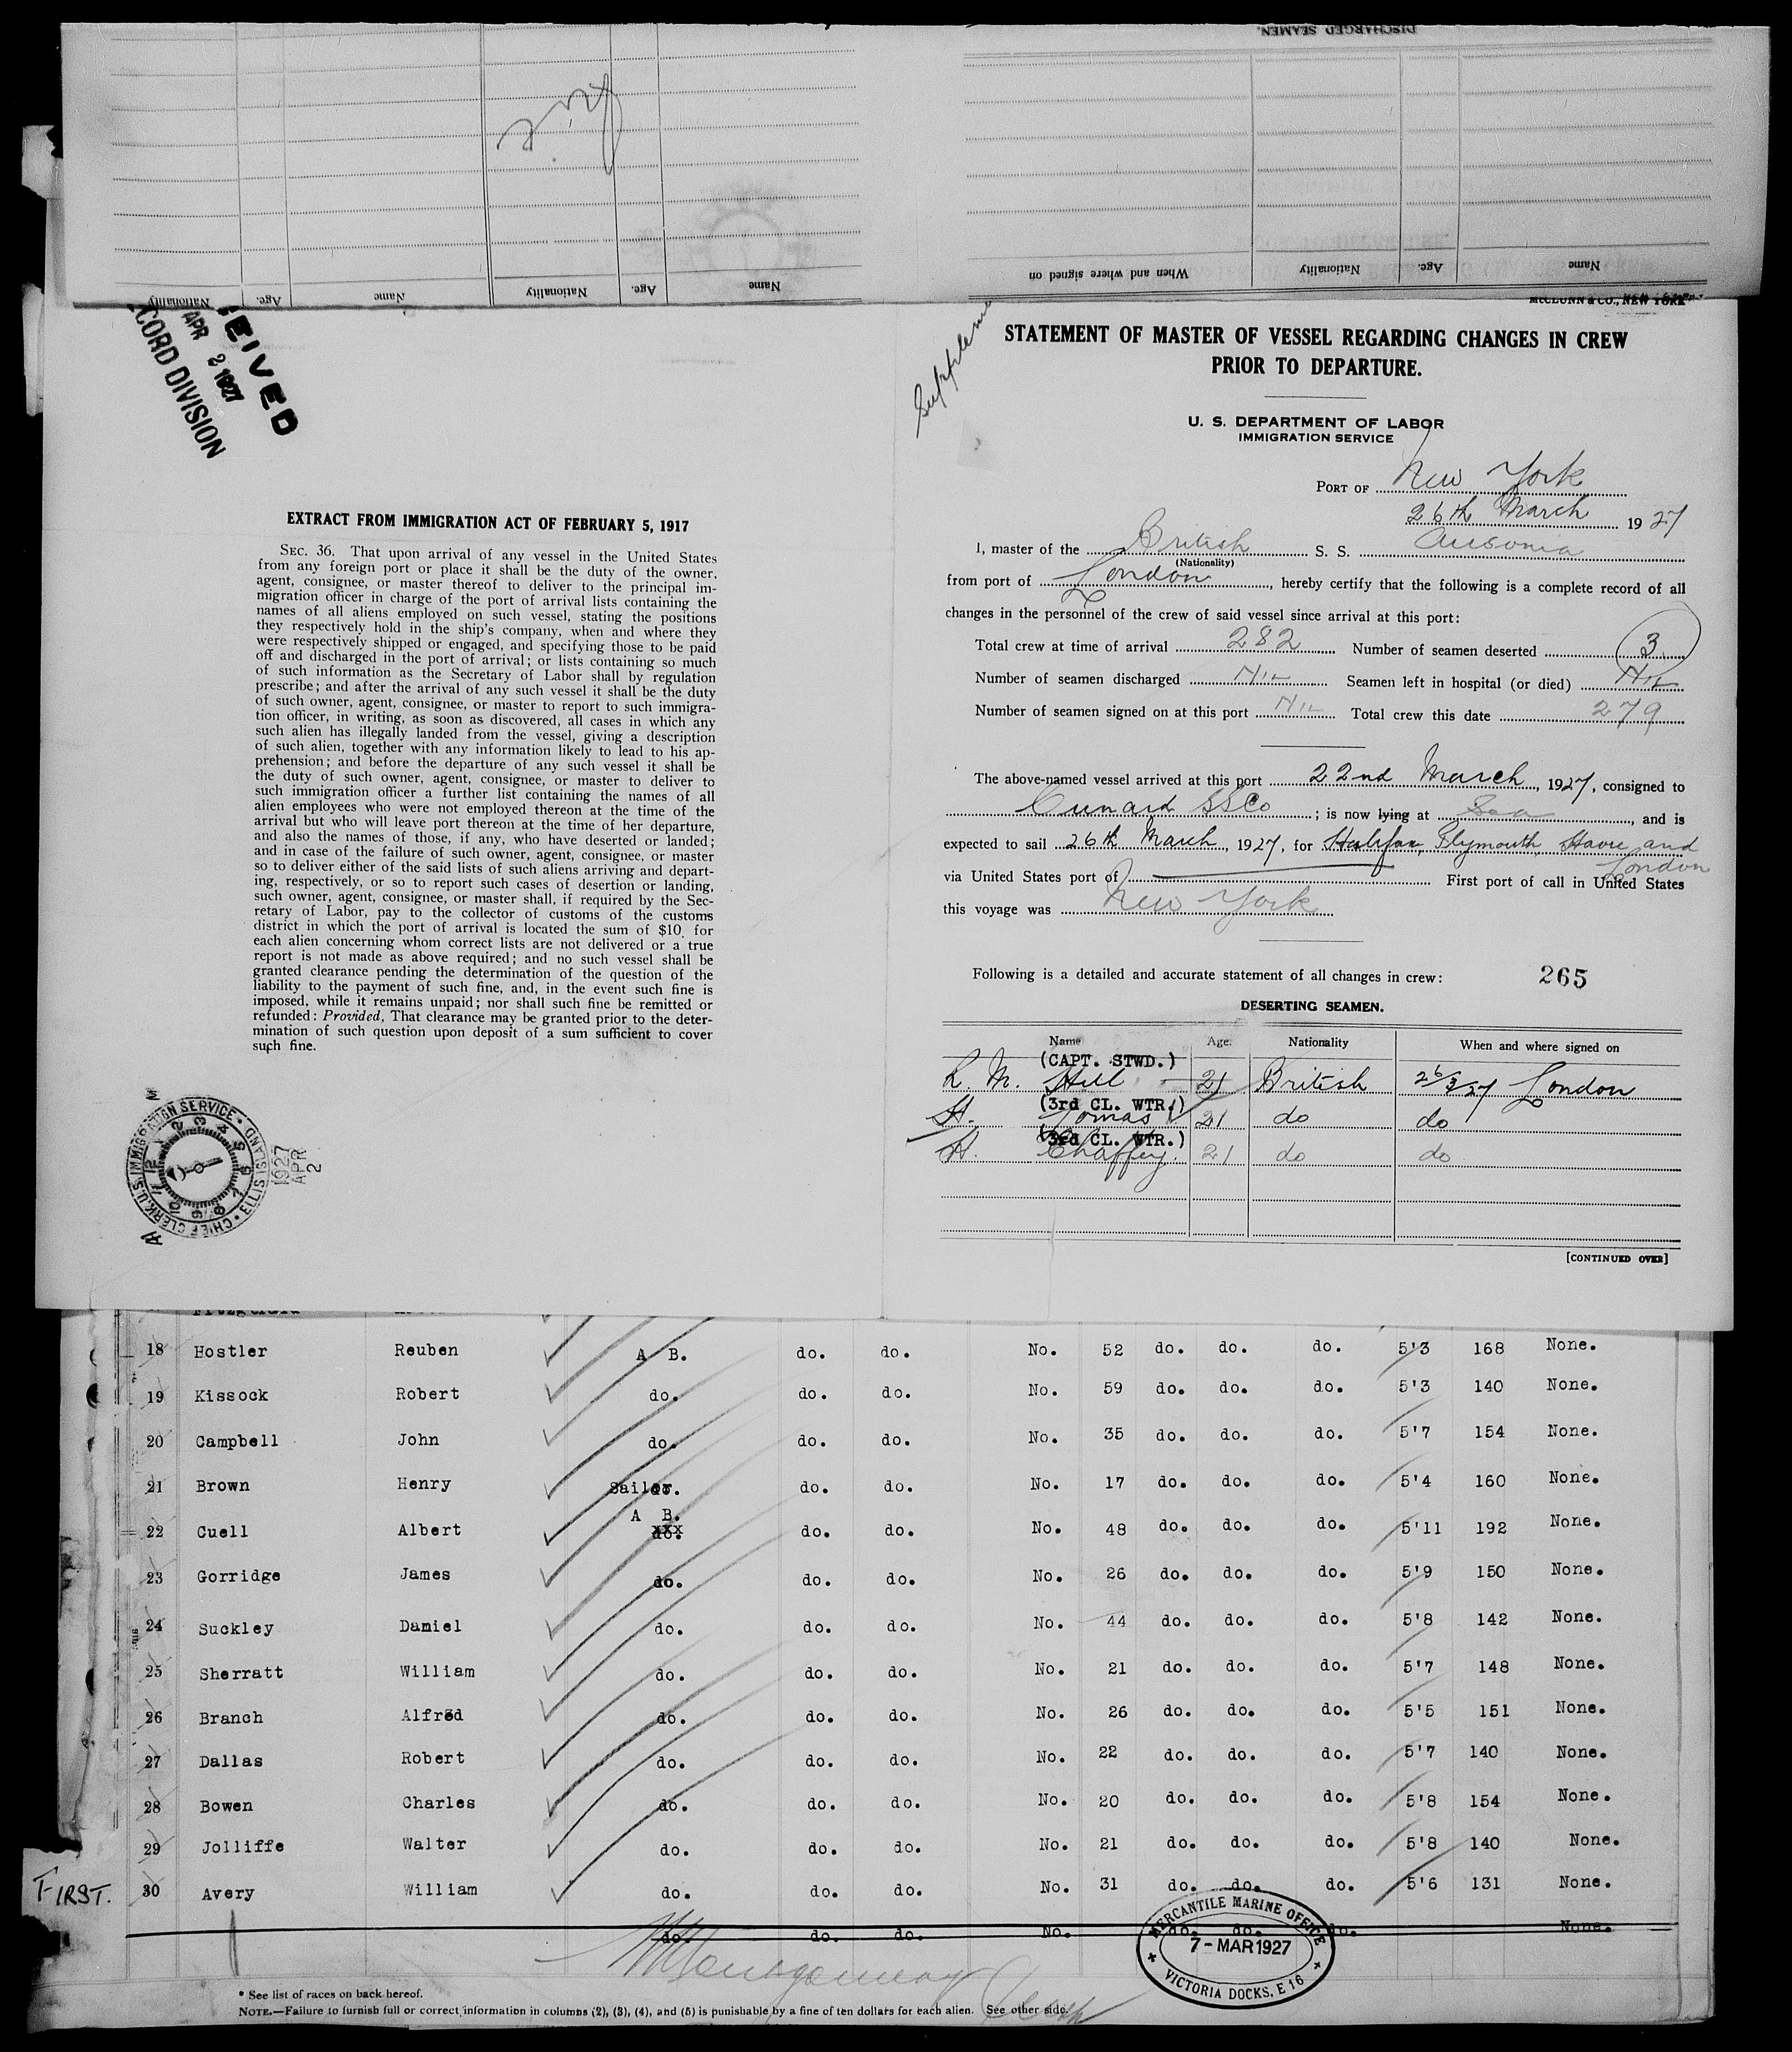 DISCHARGED SEAMEN.
Name Age. Nationality When and where signed on
Name Age. Nationality Name Age. Nationality
McCLUNN & CO., NEW YORK
EIVED
APR 2 1927
CORD DIVISION
Supplem
STATEMENT OF MASTER OF VESSEL REGARDING CHANGES IN CREW
PRIOR TO DEPARTURE.
U. S. DEPARTMENT OF LABOR
IMMIGRATION SERVICE
PORT OF New York
26th March 1927
I, master of the British S. S. Ausonia
(Nationality)
from port of London, hereby certify that the following is a complete record of all
changes in the personnel of the crew of said vessel since arrival at this port:
Total crew at time of arrival 282 Number of seamen deserted 3
Number of seamen discharged Nil Seamen left in hospital (or died) Nil
Number of seamen signed on at this port Nil Total crew this date 279
The above-named vessel arrived at this port 22nd March, 1927, consigned to
Cunard SSCo; is now lying at Sea, and is
expected to sail 26th March, 1927, for Halifax, Plymouth, Havre and
London
via United States port of First port of call in United States
this voyage was New York
Following is a detailed and accurate statement of all changes in crew: 265
DESERTING SEAMEN.
Name Age. Nationality When and where signed on
(CAPT. STWD.)
L. M. Hill 21 British 26/2/27 London
(3rd CL. WTR.)
H. Tomas 21 do do
(3rd CL. WTR.)
H. Chaffey. 21 do do
[CONTINUED OVER]
EXTRACT FROM IMMIGRATION ACT OF FEBRUARY 5, 1917
SEC. 36. That upon arrival of any vessel in the United States
from any foreign port or place it shall be the duty of the owner,
agent, consignee, or master thereof to deliver to the principal im-
migration officer in charge of the port of arrival lists containing the
names of all aliens employed on such vessel, stating the positions
they respectively hold in the ship's company, when and where they
were respectively shipped or engaged, and specifying those to be paid
off and discharged in the port of arrival; or lists containing so much
of such information as the Secretary of Labor shall by regulation
prescribe; and after the arrival of any such vessel it shall be the duty
of such owner, agent, consignee, or master to report to such immigra-
tion officer, in writing, as soon as discovered, all cases in which any
such alien has illegally landed from the vessel, giving a description
of such alien, together with any information likely to lead to his ap-
prehension; and before the departure of any such vessel it shall be
the duty of such owner, agent, consignee, or master to deliver to
such immigration officer a further list containing the names of all
alien employees who were not employed thereon at the time of the
arrival but who will leave port thereon at the time of her departure,
and also the names of those, if any, who have deserted or landed;
and in case of the failure of such owner, agent, consignee, or master
so to deliver either of the said lists of such aliens arriving and depart-
ing, respectively, or so to report such cases of desertion or landing,
such owner, agent, consignee, or master shall, if required by the Sec-
retary of Labor, pay to the collector of customs of the customs
district in which the port of arrival is located the sum of $10 for
each alien concerning whom correct lists are not delivered or a true
report is not made as above required; and no such vessel shall be
granted clearance pending the determination of the question of the
liability to the payment of such fine, and, in the event such fine is
imposed, while it remains unpaid; nor shall such fine be remitted or
refunded: Provided, That clearance may be granted prior to the deter-
mination of such question upon deposit of a sum sufficient to cover
such fine.
CHIEF CLERK, U.S. IMMIGRATION SERVICE • ELLIS ISLAND
1927
APR
2
18 Hostler Reuben A B. do. do. No. 52 do. do. do. 5'3 168 None.
19 Kissock Robert do. do. do. No. 59 do. do. do. 5'3 140 None.
20 Campbell John do. do. do. No. 35 do. do. do. 5'7 154 None.
21 Brown Henry Sailor. do. do. No. 17 do. do. do. 5'4 160 None.
22 Cuell Albert A B. do. do. No. 48 do. do. do. 5'11 192 None.
23 Gorridge James do. do. do. No. 26 do. do. do. 5'9 150 None.
24 Suckley Daniel do. do. do. No. 44 do. do. do. 5'8 142 None.
25 Sherratt William do. do. do. No. 21 do. do. do. 5'7 148 None.
26 Branch Alfred do. do. do. No. 26 do. do. do. 5'5 151 None.
27 Dallas Robert do. do. do. No. 22 do. do. do. 5'7 140 None.
28 Bowen Charles do. do. do. No. 20 do. do. do. 5'8 154 None.
29 Jolliffe Walter do. do. do. No. 21 do. do. do. 5'8 140 None.
FIRST. 30 Avery William do. do. do. No. 31 do. do. do. 5'6 131 None.
do. do. do. No. do. do. do. None.
MERCANTILE MARINE OFFICE
7 - MAR 1927
VICTORIA DOCKS, E 16
* See list of races on back hereof.
NOTE.—Failure to furnish full or correct information in columns (2), (3), (4), and (5) is punishable by a fine of ten dollars for each alien. See other side.